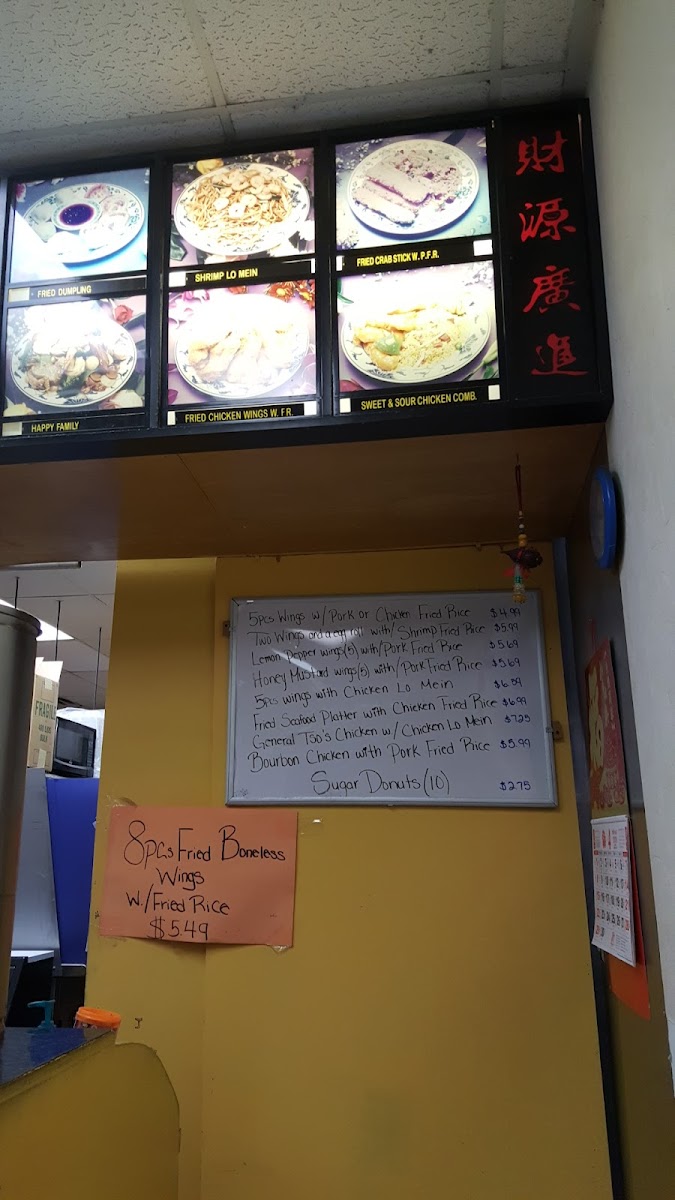 財源廣進
FRIED DUMPLING
SHRIMP LO MEIN
FRIED CRAB STICK W. P.F.R.
HAPPY FAMILY
FRIED CHICKEN WINGS W. F R.
SWEET & SOUR CHICKEN COMB.
5pcs Wings w/Pork or Chicken Fried Rice $4.99
Two Wings and a egg roll with/Shrimp Fried Rice $5.99
Lemon Pepper wings(5) with/Pork Fried Rice $5.69
Honey Mustard wings(5) with/Pork Fried Rice $5.69
5pcs wings with Chicken Lo Mein $6.59
Fried Seafood Platter with Chicken Fried Rice $6.99
General Tso's Chicken w/Chicken Lo Mein $7.25
Bourbon Chicken with Pork Fried Rice $5.99
Sugar Donuts (10) $2.75
8pcs Fried Boneless
Wings
W./Fried Rice
$5.49
FRAGILE